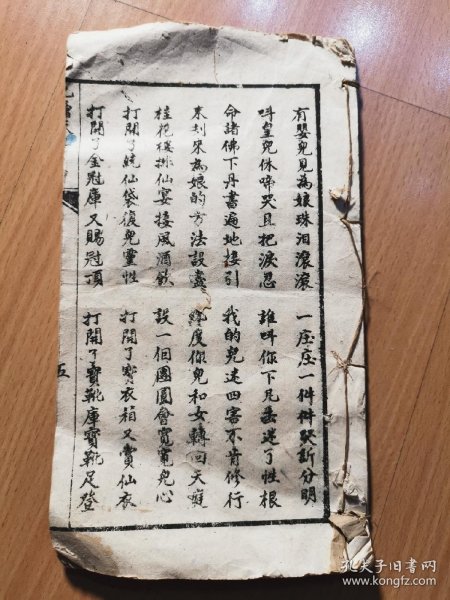 有嬰兒見為娘珠泪滾滾　一庄庄一件件哭訴分明
叫皇兒休啼哭且把淚忍　誰叫你下凡去迷了性根
命諸佛下丹書遍地接引　我的兒迷四害不肯修行
來到來為娘的方法設盡　度你兒和女轉回天庭
桂花擺排仙宴接風酒飲　設一個團圓會寬寬兒心
打開了仙袋復兒靈性　打開了寶衣箱又賞仙衣
打開了金冠庫又賜冠頂　打開了寶靴庫寶靴足登
五
孔夫子旧书网
www.kongfz.com